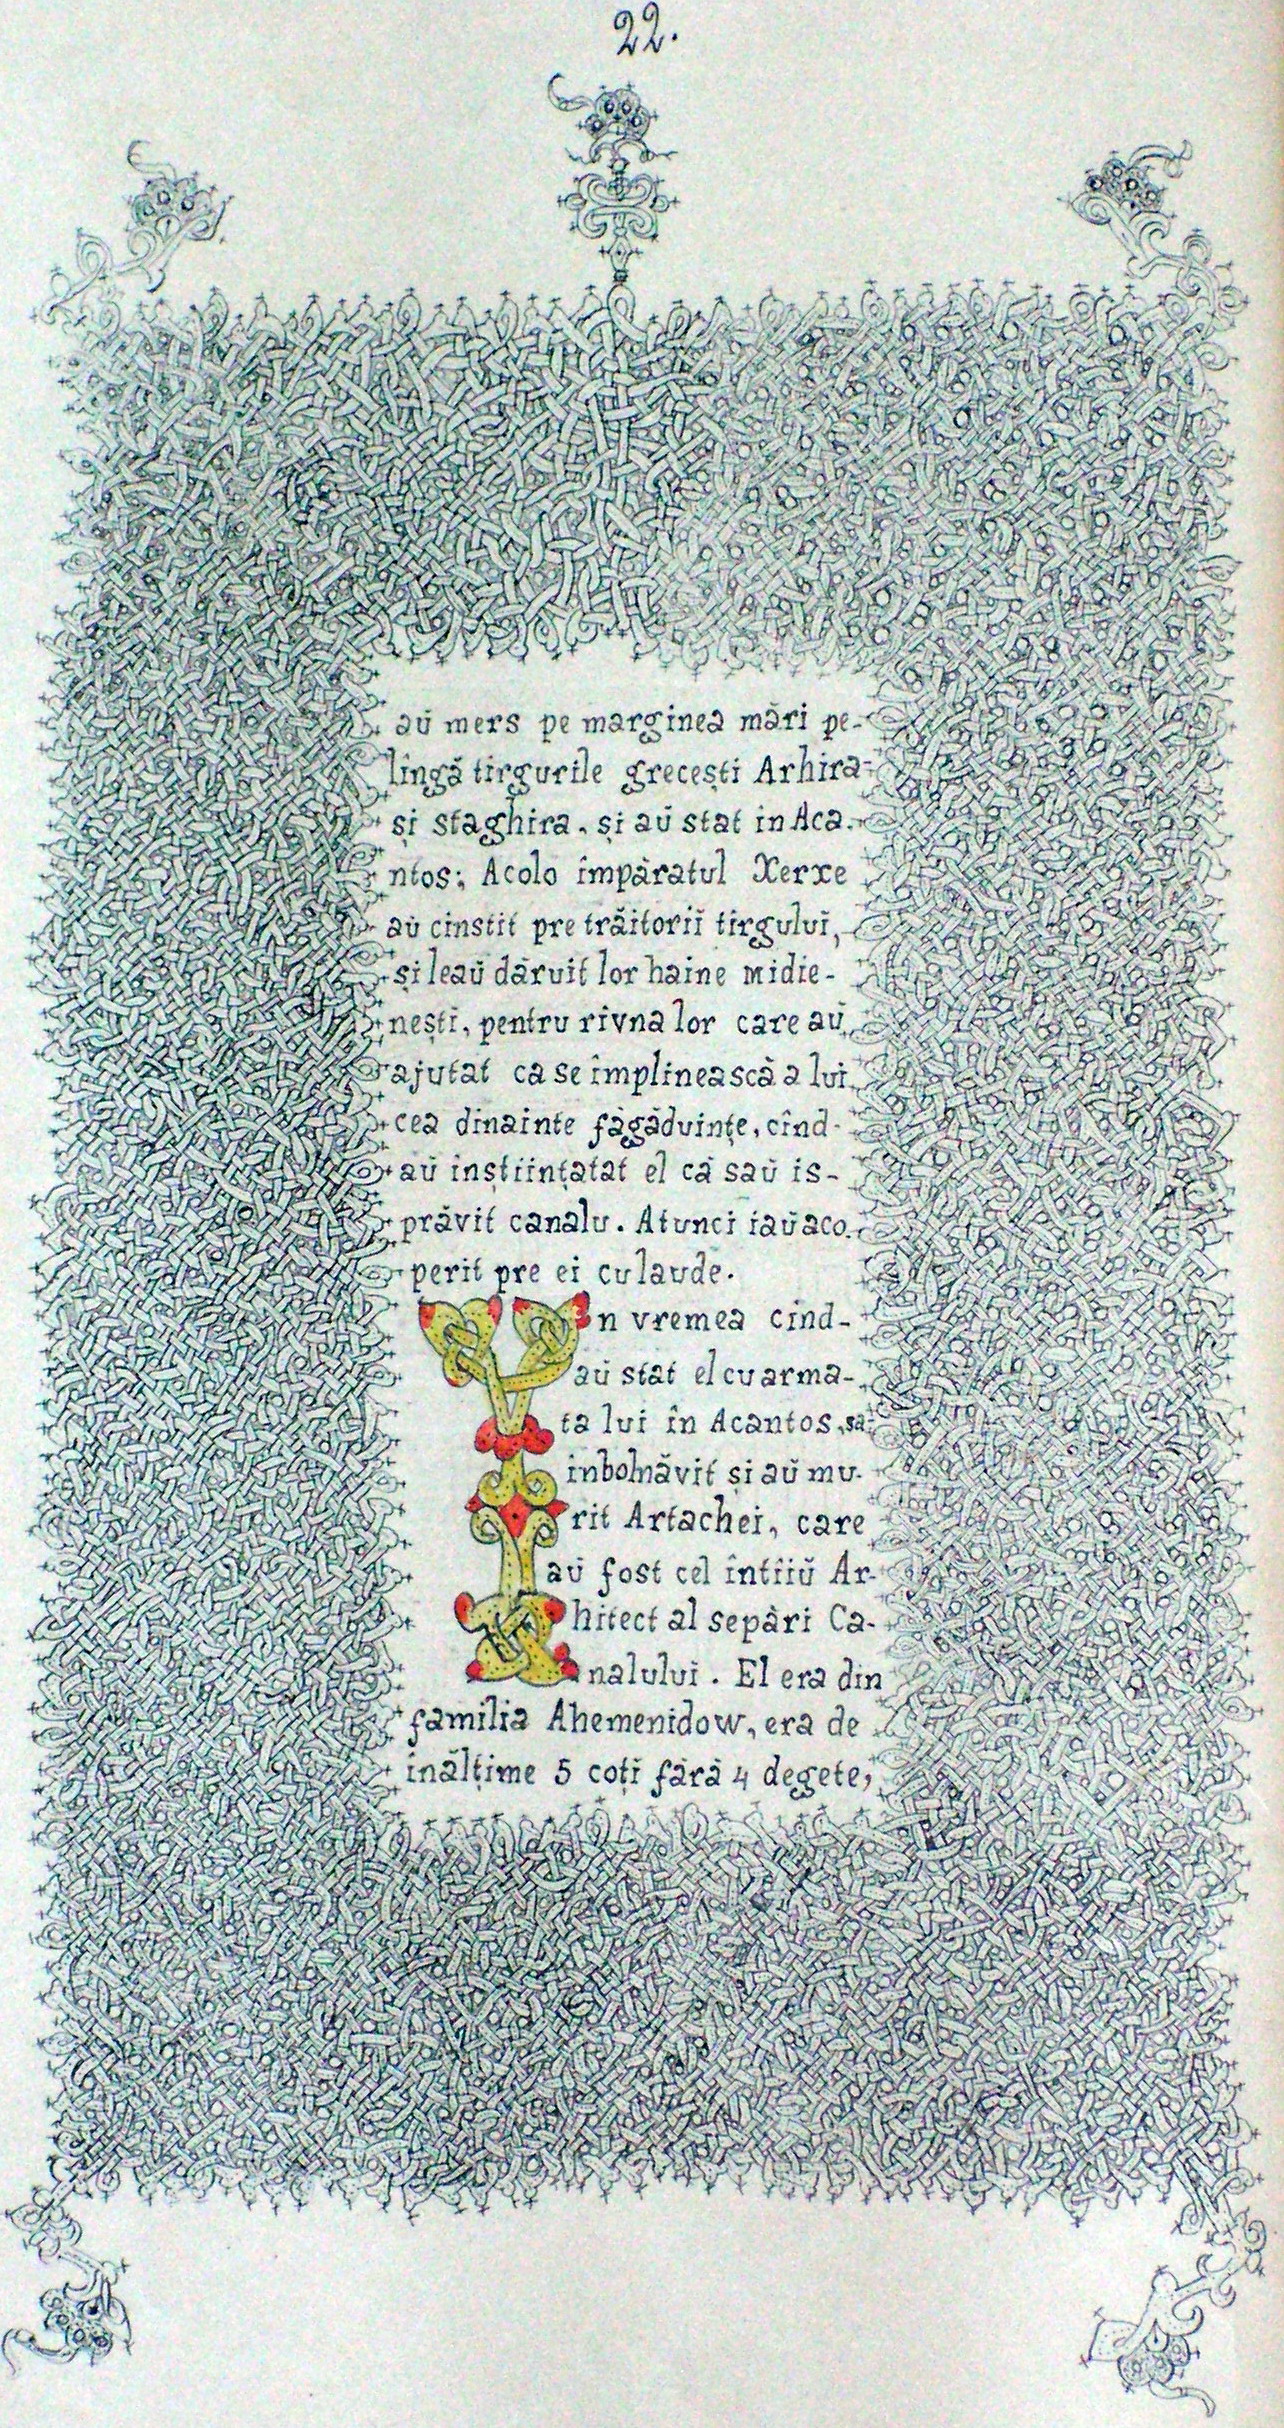 22.
aŭ mers pe marginea mări pe-
lîngă tirgurile grecești Arhira-
și staghira, și aŭ stat in Aca-
ntos; Acolo împăratul Xerxe
aŭ cinstit pre trăitoriĭ tirguluĭ,
și leaŭ dăruit lor haine midie-
nești, pentru rivna lor care aŭ
ajutat ca se împlinească a lui
cea dinainte făgăduințe, cînd-
aŭ inștiințatat el că saŭ is-
prăvit canalu. Atunci iaŭ aco-
perit pre ei cu laude.
In vremea cind-
aŭ stat el cu arma-
ta lui în Acantos, sa-
inbolnăvit și aŭ mu-
rit Artachei, care
aŭ fost cel întîiŭ Ar-
hitect al sepări Ca-
naluluĭ. El era din
familia Ahemenidow, era de
inălțime 5 coțĭ fără 4 degete,